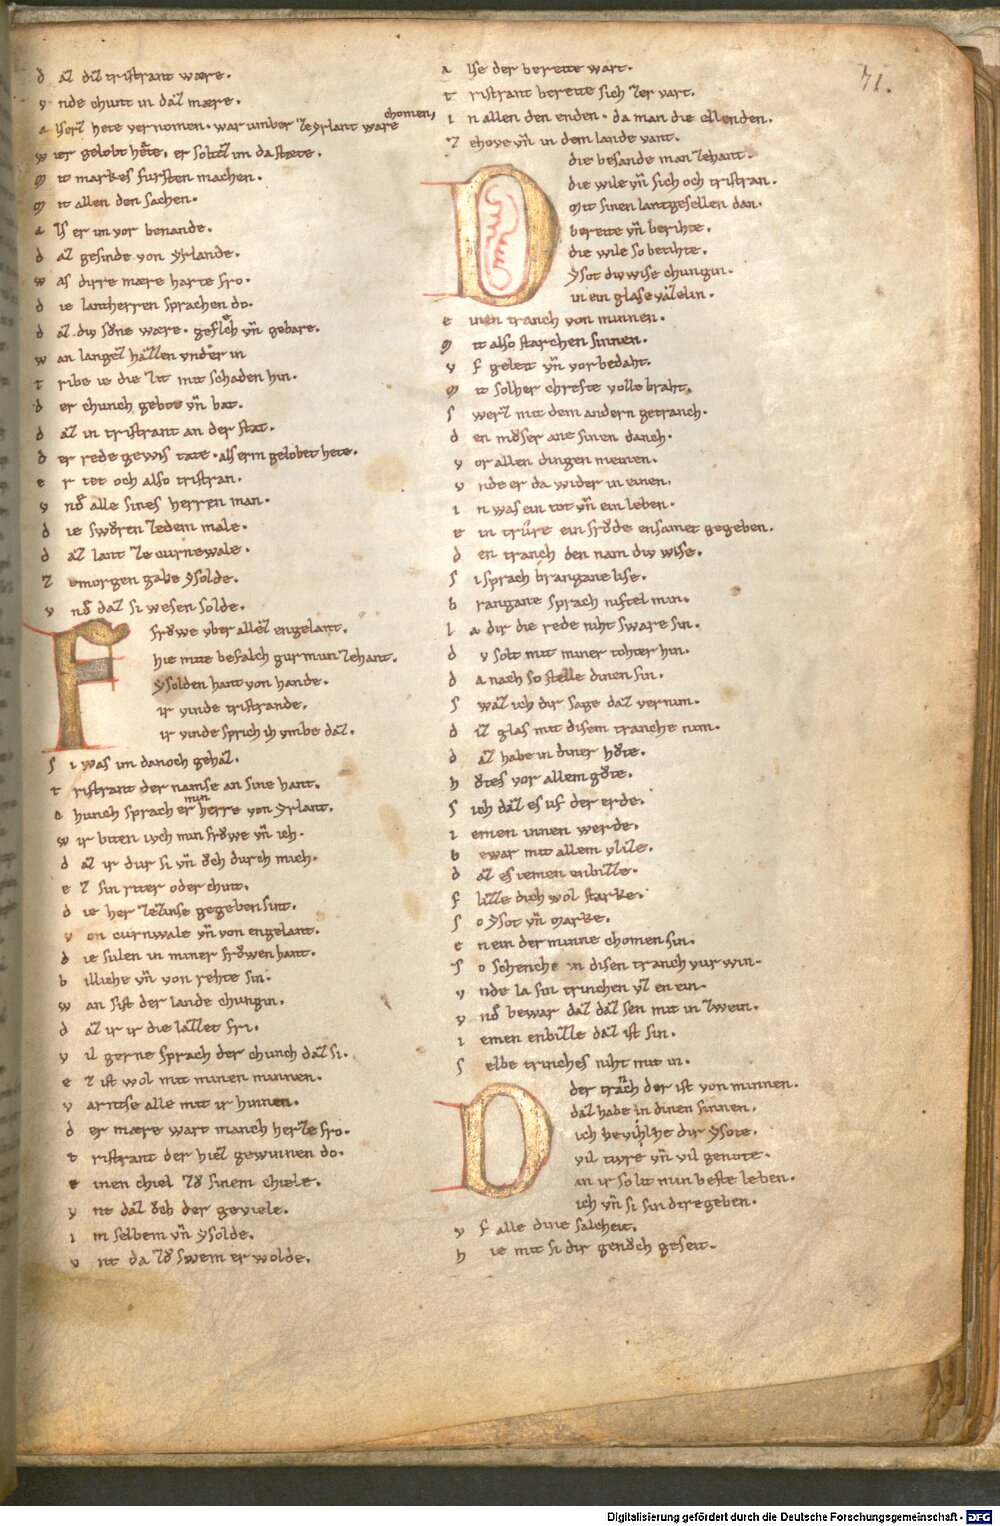 71.
d az diz tristrant wære.
v nde chunt in daz mære.
a lserz hete vernomen. war umber zeyrlant ware chomen,
w ier gelobt hete. er soltez im da stæte.
M it markes fursten machen.
M it allen den sachen.
a ls er im vor benande.
d az gesinde von yrlande.
w as dirre mære harte fro.
d ie lantherren sprachen do.
d az div sone wære. gefloch vn̄ gebare.
w an langez hazzen vnder in
t ribe ie die lut mit schaden hin.
d er chunch gebot vn̄ bat.
d az in tristrant an der stat.
d er rede gewis tate. als erm gelobet hete.
e r tet och also tristran.
v nd alle sines herren man.
d ie sworen zedem male.
d az lant ze curnewale.
z emorgen gabe ysolde.
v nd daz si wesen solde.
F frowe vber allez engelant.
hie mite befalch gurmun zehant.
ysolden hant von hande.
ir vinde tristrande.
ir vinde sprich ih vmbe daz.
s i was im danoch gehaz.
t ristrant der namse an sine hant.
c hunch sprach er min herre von yrlant.
w ir biten ivch min frowe vn̄ ich.
d az ir dur si vn̄ och durch mich.
e z sin riter oder chint.
d ie her zezinse gegeben sint.
v on curnwale vn̄ von engelant.
d ie sulen in miner frowen hant.
b illiche vn̄ von rehte sin.
w an sist der lande chungin.
d az ir ir die lazzet fri.
v il gerne sprach der chunch daz si.
e z ist wol mit minen minnen.
v arntse alle mit ir hinnen.
d er mære wart manch herze fro.
t ristrant der hiez gewinnen do.
e inen chiel zo sinem chiele.
v nt daz och der geviele.
i m selbem vn̄ ysolde.
v nt da zo swem er wolde.
a lse der bereite wart.
t ristrant bereite sich zer vart.
i n allen den enden. da man die ellenden.
z ehove vn̄ in dem lande vant.
D die besande man zehant.
die wile vn̄ sich och tristran.
Mit sinen lantgesellen dan.
bereite vn̄ berihte.
die wile so betihte.
ysot div wise chungin.
in ein glase vazzelin.
e inen tranch von minnen.
M it also starchen sinnen.
v f geleit vn̄ vorbedaht.
M it solher chrefte volle braht.
s werz mit dem andern getranch.
d en moser ane sinen danch.
v or allen dingen meinen.
v nde er da wider in einen.
i n was ein tot vn̄ ein leben.
e in trure ein frode ensamet gegeben.
d en tranch den nam div wise.
s i sprach brangane lise.
b rangane sprach niftel min.
l a dir die rede niht sware sin.
d v solt mit miner tohter hin.
d a nach so stelle dinen sin.
s waz ich dir sage daz vernim.
d iz glas mit disem tranche nim.
d az habe in diner hote.
h otes vor allem gote.
s ich daz es uf der erde.
i emen innen werde.
b ewar mit allem vlize.
d az es iemen enbizze.
f lizze dich wol starke.
s o ysot vn̄ Marke.
e n ein der minne chomen sin.
s o schenche in disen tranch vur win.
v nde la sin trinchen vz en ein.
v nd bewar daz daz sen mit in zwein.
i emen enbizze daz ist sin.
s elbe trinches niht mit in.
D der tranch der ist von minnen.
daz habe in dinen sinnen.
ich bevilhe dir ysote.
vil tivre vn̄ vil genote.
an ir so lit min beste leben.
ich vn̄ si sin dir egeben.
v f alle dine salcheit.
h ie mit si dir genoch geseit.
Digitalisierung gefördert durch die Deutsche Forschungsgemeinschaft - DFG